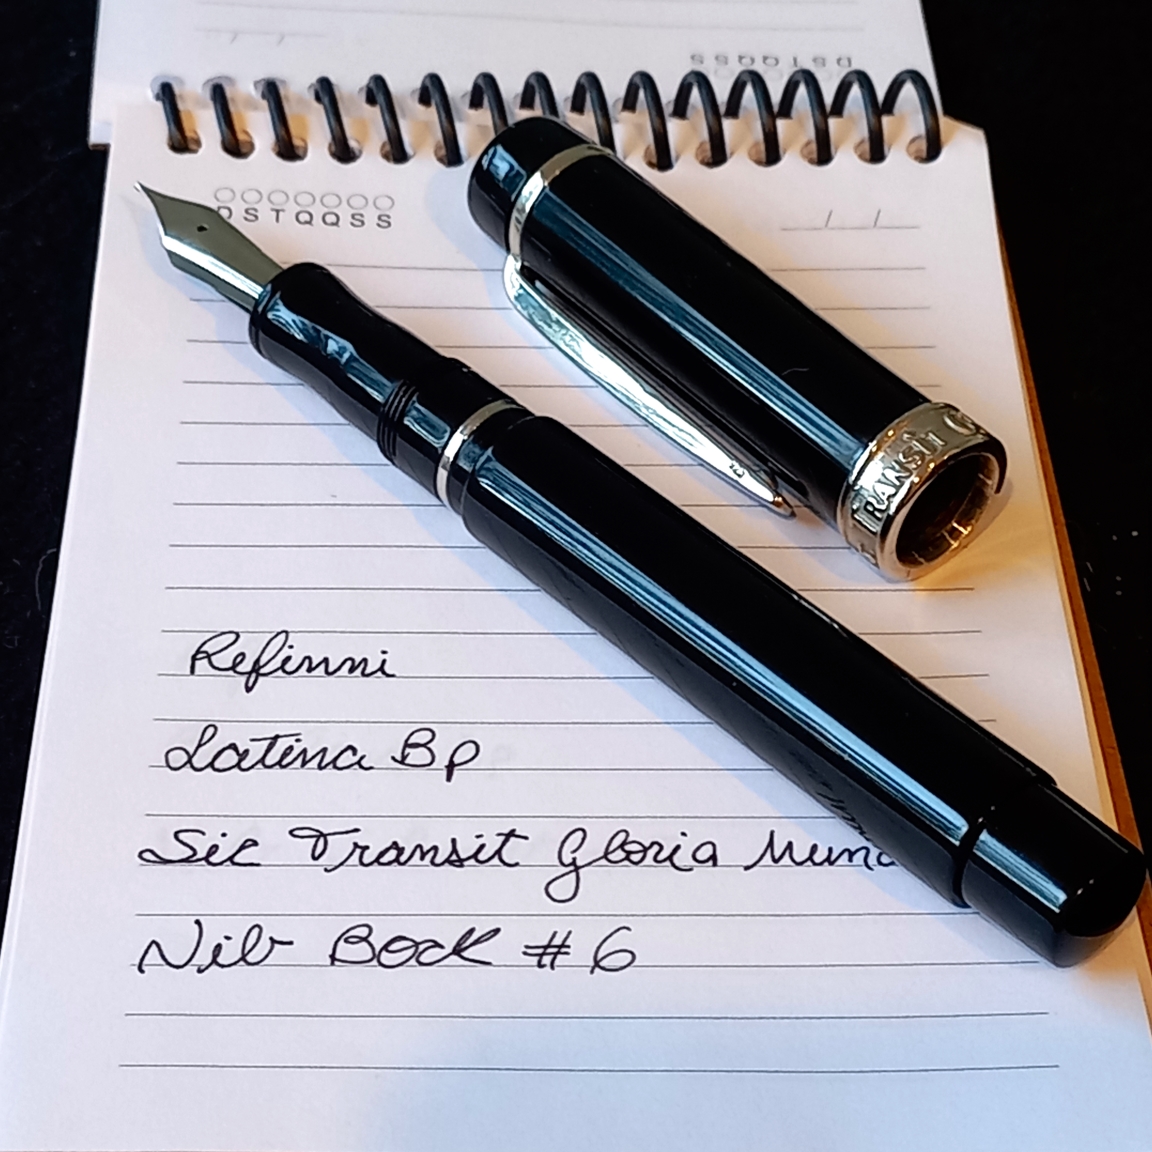 DSTQQSS
DSTQQSS
/ /
TRANSIT
Refinni
Latina Bp
Sic Transit Gloria
Nib Bock #6